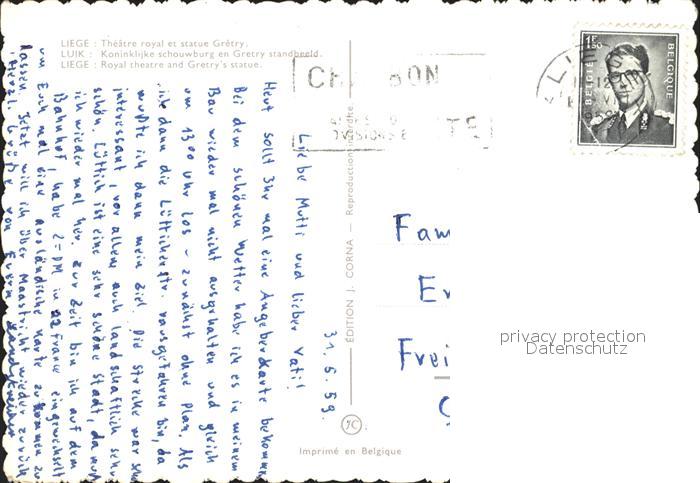 LIEGE : Théâtre royal et statue Grétry.
LUIK : Koninklijke schouwburg en Gretry standbeeld.
LIEGE : Royal theatre and Gretry's statue.
BELGIE
BELGIQUE
1F50
31.5.59.
Liebe Mutti und lieber Vati!
Heut sollt Ihr mal eine Angeberkarte bekommen
Bei dem schönen Wetter habe ich es in meinem
Bau wieder mal nicht ausgehalten und gleich
um 13 00 Uhr los - zunächst ohne Plan. Als
ich dann die Lütticherstr. rausgefahren bin, da
wußte ich dann mein Ziel. Die Strecke war sehr
interessant, vor allem auch landschaftlich sehr
schön. Lüttich ist eine sehr schöne Stadt, da muß
ich wieder mal her. Zur Zeit bin ich auf dem
Bahnhof, habe 2,- DM in 22 France eingewechselt
um Euch mal eine ausländische Karte zukommen zu
lassen. Jetzt will ich über Maastricht wieder zurück
Herzl. Grüße von Eurem
ÉDITION J. CORNA — Reproduction interdite.
JC
Imprimé en Belgique
Fam
Er
Frei
privacy protection
Datenschutz